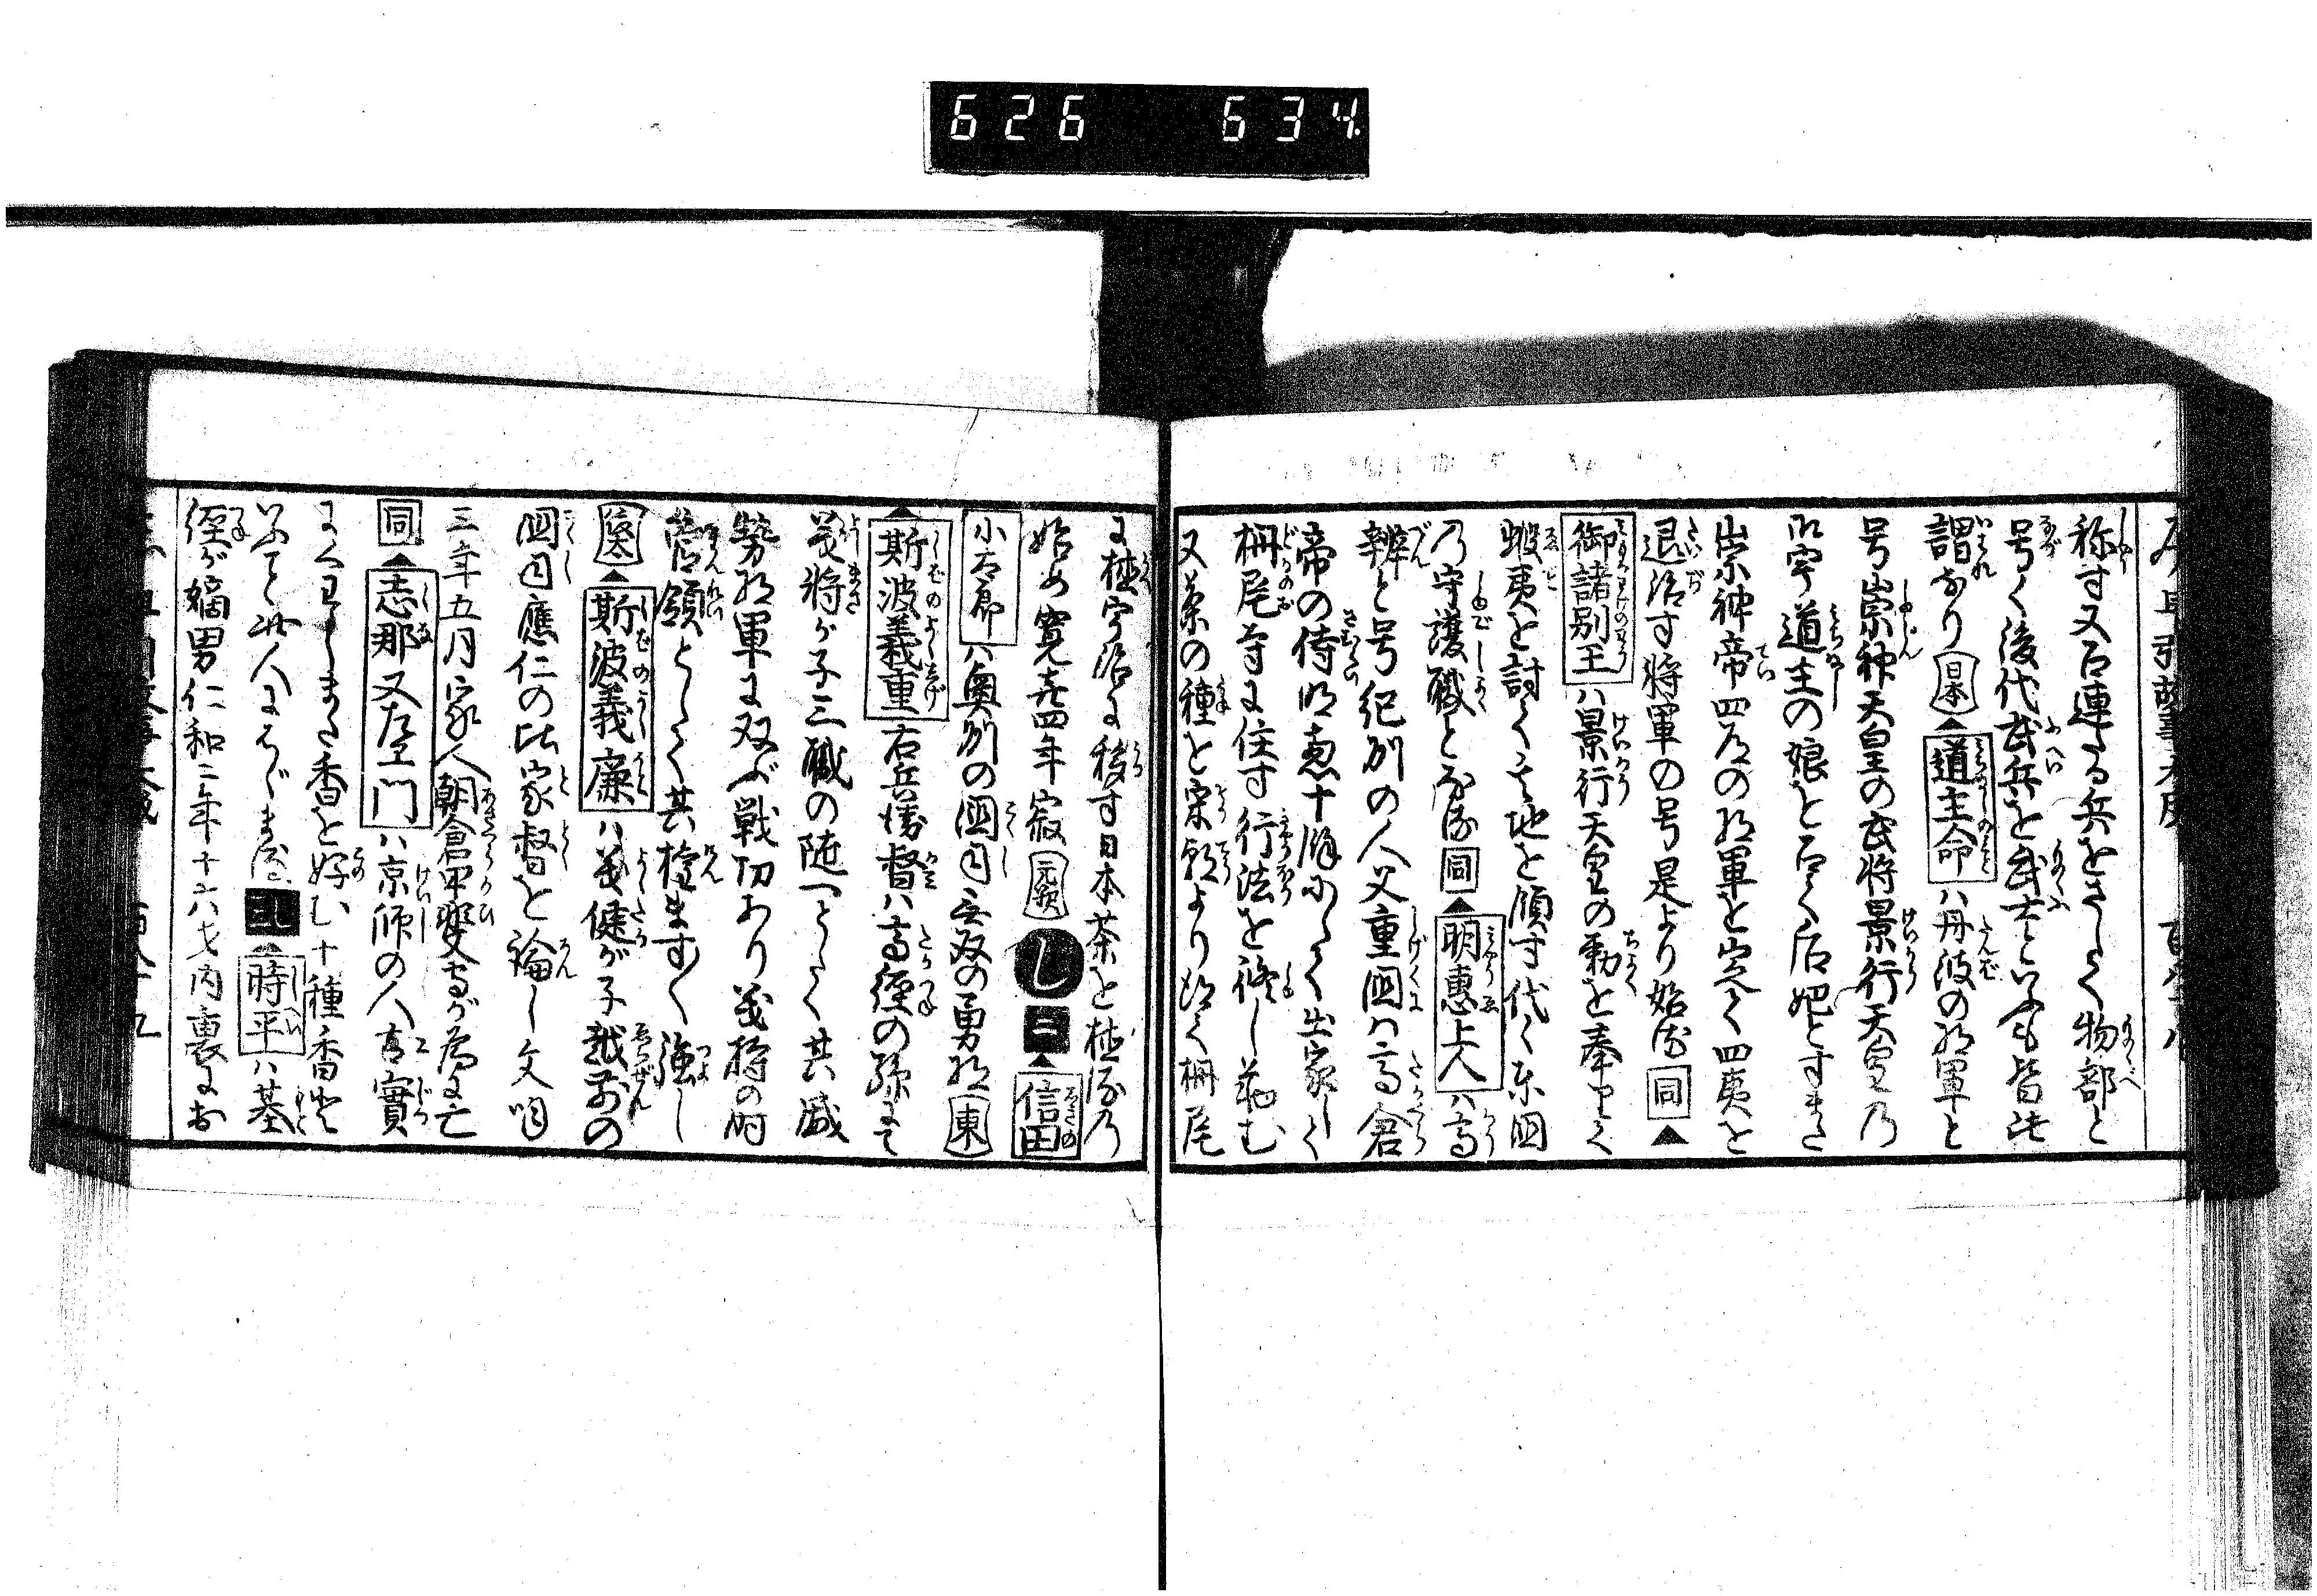 626 634
称す又石連たる兵をさして物部と
号く後代武兵を武士といふも皆此
謂なり 日本 ▲道主命 ハ丹波の将軍と
号崇神天皇の武将景行天皇乃
御宇道主の娘を召て后妃とすまた
崇神帝四道の将軍を定て四夷を
退治す将軍の号是より始る 同 ▲
御諸別王 ハ景行天皇の勅を奉りて
蝦夷を討て其地を領す代々東国
乃守護職となる 同 ▲明恵上人 ハ高
辨と号紀州の人父重国ハ高倉
帝の侍明恵十余にして出家して
栂尾寺に住す行法を修し茶を
又茶の種を宋朝より得て栂尾
に植宇治に移す日本茶を植るの
始め寛喜四年寂 元亨 し 二 ▲信田
小太郎 ハ奥州の国司無双の勇将 東
▲斯波義重 右兵衛督ハ高経の孫にて
義将が子三職の随一として其威
勢将軍に双ぶ戦功あり義持の時
管領として其権ますます強し
▲斯波義廉 ハ義健が子越前の
国司應仁の比家督を論し文明
三年五月家人朝倉甲斐等が為に亡
同 ▲志那又左エ門 ハ京師の人有實
にくわしまた香を好む十種香
此人にはじまる 三 ▲時平 ハ基
経が嫡男仁和二年十六才内裏にお